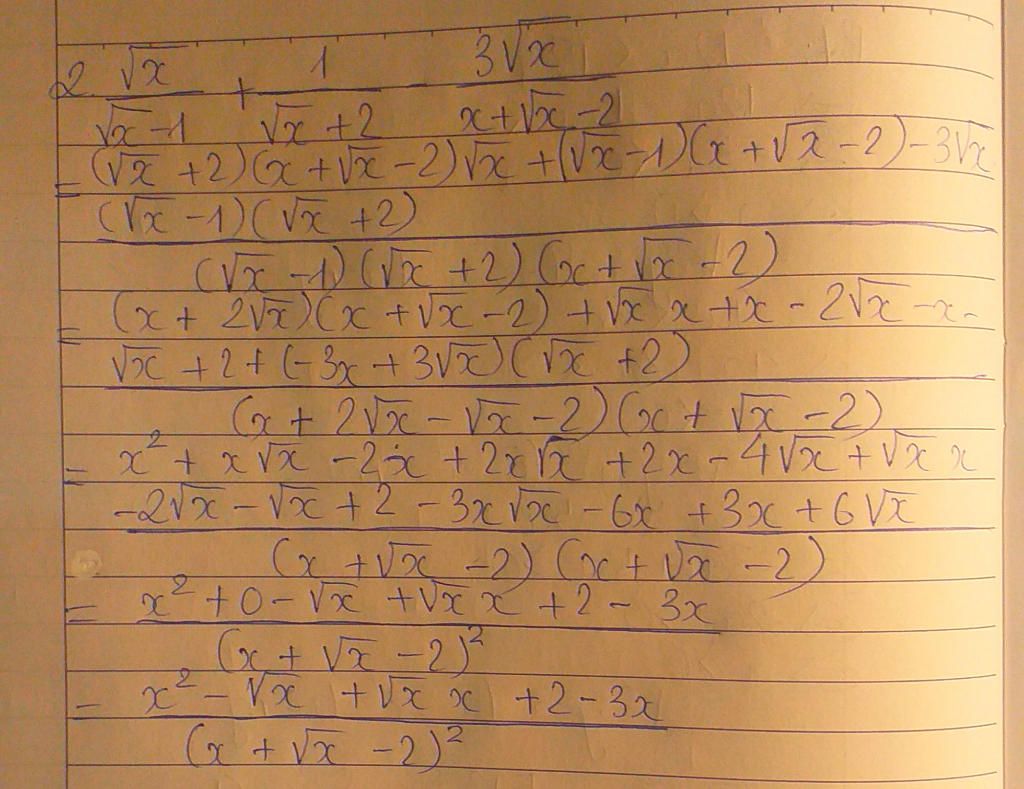 2 √x/(√x-1) + 1/(√x+2) - 3√x/(x+√x-2)
= (√x +2)(x+√x -2)√x +(√x-1)(x+√x -2)-3√x
(√x -1)(√x +2)
(√x -1)(√x +2)(x+√x -2)
= (x+ 2√x)(x+√x-2) +√x x +x - 2√x -x-
√x +2+(-3x+3√x)(√x +2)
(x+ 2√x -√x -2)(x+ √x -2)
= x² + x√x -2x + 2x√x +2x - 4√x +√x x
-2√x -√x +2 -3x√x -6x +3x +6√x
(x+√x -2)(x+√x -2)
= x² +0 -√x +√x x +2 - 3x
(x+ √x -2)²
= x² - √x +√x x +2 -3x
(x +√x -2)²